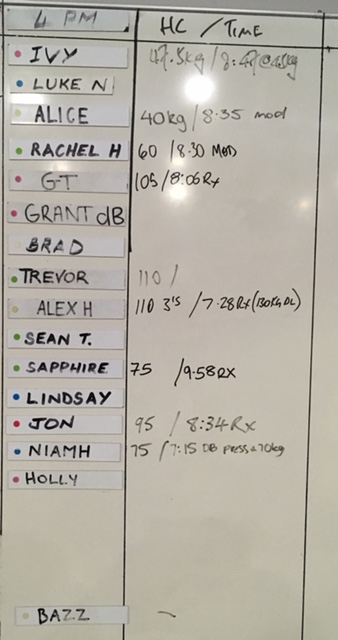 4 PM HC / TIME
IVY 47.5kg / 8:47@45kg
LUKE N
ALICE 40kg / 8:35 mod
RACHEL H 60 / 8:30 MOD
G-T 105 / 8:06 Rx
GRANT dB
BRAD
TREVOR 110 /
ALEX H 110 3's / 7:28 Rx (130KG DL)
SEAN T.
SAPPHIRE 75 / 9:58 RX
LINDSAY
JON 95 / 8:34 Rx
NIAMH 75 / 7:15 DB press + 70kg
HOLLY
BAZZ –